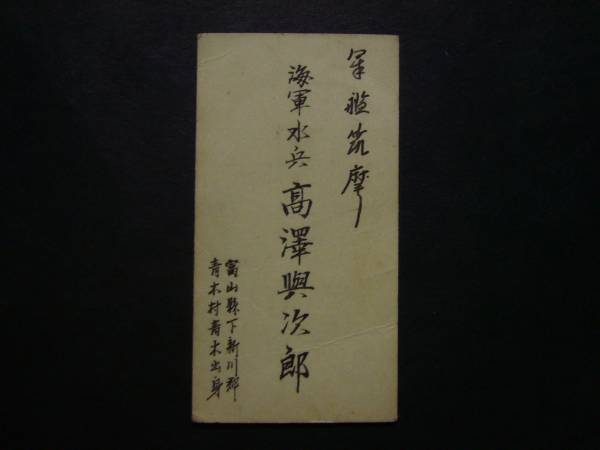 軍艦筑摩
海軍水兵 高澤與次郎
富山縣下新川郡
青木村青木出身